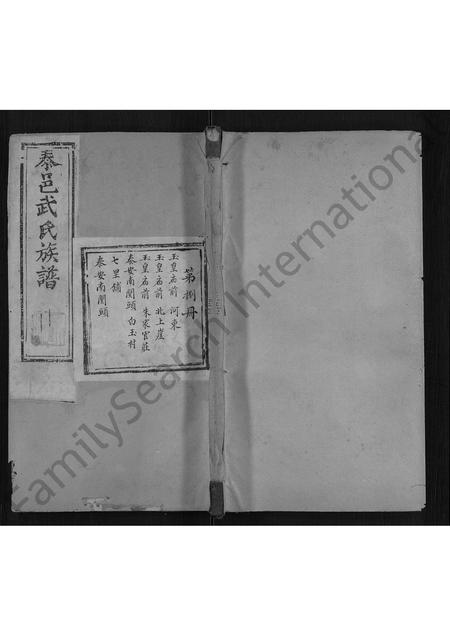 泰邑武氏族譜
第捌冊
玉皇庙前 河東
玉皇庙前 北上崖
玉皇庙前 朱家官莊
泰安南関頭 白玉村
七里鋪
泰安南関頭
FamilySearch International